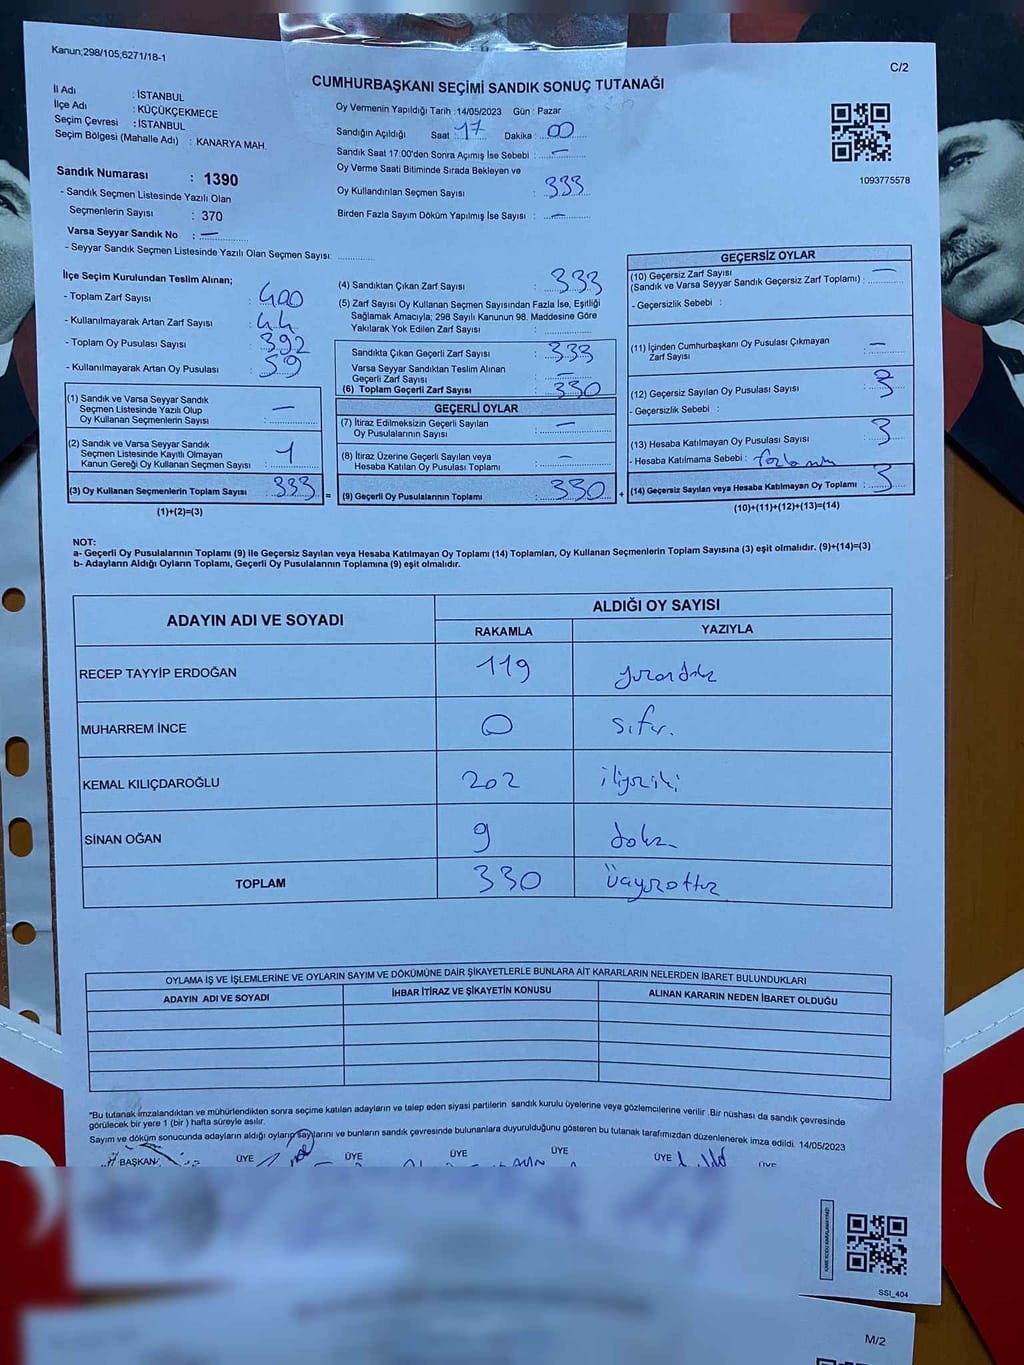 Kanun;298/105;6271/18-1
C/2
CUMHURBAŞKANI SEÇİMİ SANDIK SONUÇ TUTANAĞI
İl Adı : İSTANBUL
İlçe Adı : KÜÇÜKÇEKMECE
Seçim Çevresi : İSTANBUL
Seçim Bölgesi (Mahalle Adı) : KANARYA MAH.
Sandık Numarası : 1390
- Sandık Seçmen Listesinde Yazılı Olan
Seçmenlerin Sayısı : 370
Varsa Seyyar Sandık No : —
- Seyyar Sandık Seçmen Listesinde Yazılı Olan Seçmen Sayısı:
Oy Vermenin Yapıldığı Tarih :14/05/2023 Gün : Pazar
Sandığın Açıldığı Saat : 17 Dakika : 00
Sandık Saat 17:00'den Sonra Açımış İse Sebebi : —
Oy Verme Saati Bitiminde Sırada Bekleyen ve
Oy Kullandırılan Seçmen Sayısı : 333
Birden Fazla Sayım Döküm Yapılmış İse Sayısı : —
1093775578
İlçe Seçim Kurulundan Teslim Alınan;
- Toplam Zarf Sayısı : 400
- Kullanılmayarak Artan Zarf Sayısı : 44
- Toplam Oy Pusulası Sayısı : 392
- Kullanılmayarak Artan Oy Pusulası : 59
(1) Sandık ve Varsa Seyyar Sandık
Seçmen Listesinde Yazılı Olup
Oy Kullanan Seçmenlerin Sayısı : —
(2) Sandık ve Varsa Seyyar Sandık
Seçmen Listesinde Kayıtlı Olmayan
Kanun Gereği Oy Kullanan Seçmen Sayısı : 1
(3) Oy Kullanan Seçmenlerin Toplam Sayısı : 333
(1)+(2)=(3)
=
(4) Sandıktan Çıkan Zarf Sayısı : 333
(5) Zarf Sayısı Oy Kullanan Seçmen Sayısından Fazla İse, Eşitliği
Sağlamak Amacıyla; 298 Sayılı Kanunun 98. Maddesine Göre
Yakılarak Yok Edilen Zarf Sayısı :
Sandıkta Çıkan Geçerli Zarf Sayısı : 333
Varsa Seyyar Sandıktan Teslim Alınan
Geçerli Zarf Sayısı : —
(6) Toplam Geçerli Zarf Sayısı : 330
GEÇERLİ OYLAR
(7) İtiraz Edilmeksizin Geçerli Sayılan
Oy Pusulalarının Sayısı : —
(8) İtiraz Üzerine Geçerli Sayılan veya
Hesaba Katılan Oy Pusulası Toplamı : —
(9) Geçerli Oy Pusulalarının Toplamı : 330
+
GEÇERSİZ OYLAR
(10) Geçersiz Zarf Sayısı —
(Sandık ve Varsa Seyyar Sandık Geçersiz Zarf Toplamı) :
- Geçersizlik Sebebi :
(11) İçinden Cumhurbaşkanı Oy Pusulası Çıkmayan
Zarf Sayısı : —
(12) Geçersiz Sayılan Oy Pusulası Sayısı : 3
- Geçersizlik Sebebi :
(13) Hesaba Katılmayan Oy Pusulası Sayısı : 3
- Hesaba Katılmama Sebebi :
(14) Geçersiz Sayılan veya Hesaba Katılmayan Oy Toplamı : 3
(10)+(11)+(12)+(13)=(14)
NOT:
a- Geçerli Oy Pusulalarının Toplamı (9) ile Geçersiz Sayılan veya Hesaba Katılmayan Oy Toplamı (14) Toplamları, Oy Kullanan Seçmenlerin Toplam Sayısına (3) eşit olmalıdır. (9)+(14)=(3)
b- Adayların Aldığı Oyların Toplamı, Geçerli Oy Pusulalarının Toplamına (9) eşit olmalıdır.
ADAYIN ADI VE SOYADI
ALDIĞI OY SAYISI
RAKAMLA YAZIYLA
RECEP TAYYİP ERDOĞAN 119
MUHARREM İNCE 0 sıfır.
KEMAL KILIÇDAROĞLU 202 ikiyüziki
SİNAN OĞAN 9 dokuz
TOPLAM 330 üçyüzottuz
OYLAMA İŞ VE İŞLEMLERİNE VE OYLARIN SAYIM VE DÖKÜMÜNE DAİR ŞİKAYETLERLE BUNLARA AİT KARARLARIN NELERDEN İBARET BULUNDUKLARI
ADAYIN ADI VE SOYADI İHBAR İTİRAZ VE ŞİKAYETİN KONUSU ALINAN KARARIN NEDEN İBARET OLDUĞU
"Bu tutanak imzalandıktan ve mühürlendikten sonra seçime katılan adayların ve talep eden siyasi partilerin sandık kurulu üyelerine veya gözlemcilerine verilir .Bir nüshası da sandık çevresinde
görülecek bir yere 1 (bir ) hafta süreyle asılır.
Sayım ve döküm sonucunda adayların aldığı oyların sayılarını ve bunların sandık çevresinde bulunanlara duyurulduğunu gösteren bu tutanak tarafımızdan düzenlenerek imza edildi. 14/05/2023
BAŞKAN ÜYE ÜYE ÜYE ÜYE ÜYE ÜYE
SSI_404
M/2